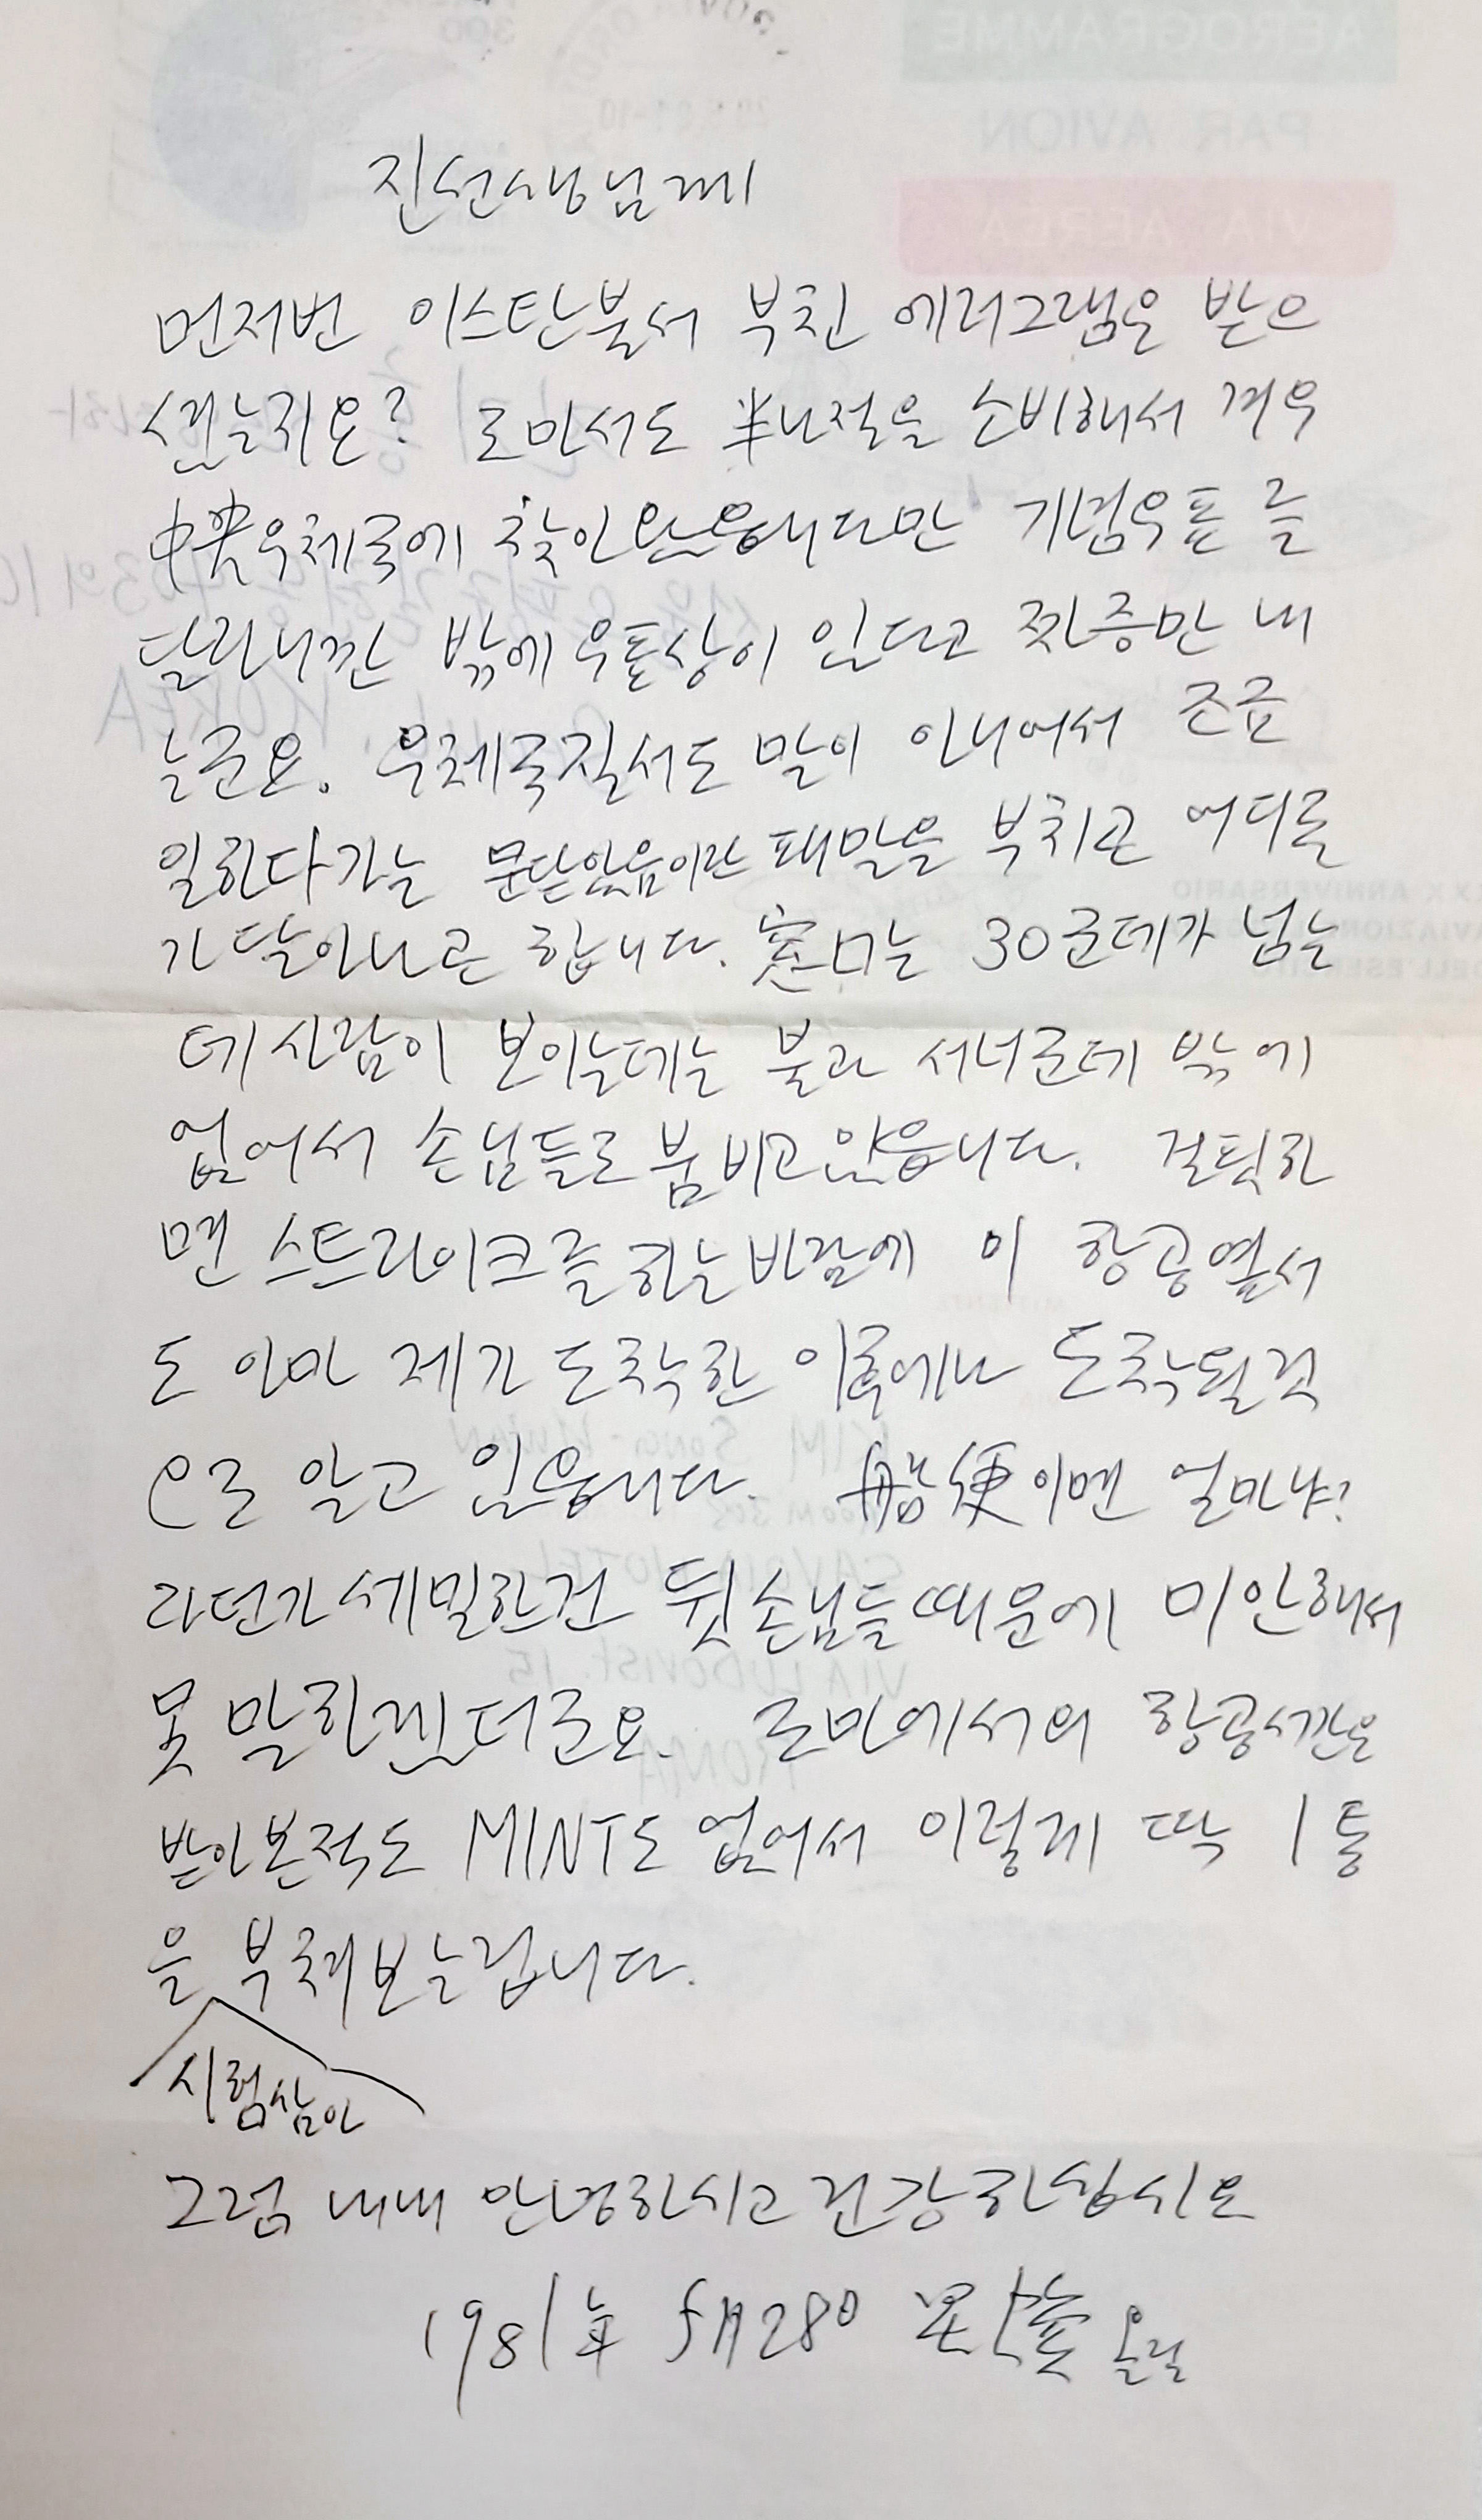 진선생님께
먼저번 이스탄불서 부친 에러그램은 받으
셨는지요? 로마서도 半나절을 소비해서 겨우
中央우체국에 찾아 왔읍니다만 기념우표를
달라니깐 밖에 우표상이 있다고 짜증만 내
는군요. 우체국질서도 말이 아니어서 조금
일하다가는 문닫었음이란 패말을 부치고 어디론
가 달아나곤 합니다. 窓口는 30군데가 넘는
데 사람이 보이는데는 불과 서너군데 밖에
없어서 손님들로 붐비고 있읍니다. 걸핏하
면 스트라이크를 하는 바람에 이 항공엽서
도 아마 제가 도착한 이후에나 도착될것
으로 알고 있읍니다. 船便이면 얼마냐?
라던가 세밀한건 뒷손님들때문에 미안해서
못 말하겠더군요. 로마에서의 항공서간은
받아본적도 MINT도 없어서 이렇게 딱 1통
을 부쳐보는겁니다.
시험삼아
그럼 내내 안녕하시고 건강하십시요
1981年 5月28日 올림
AEROGRAMME
PAR AVION
VIA AEREA
300
KOREA
XX ANNIVERSARIO
AVIAZIONE
DELL'ESERCITO
KIM
ROOM 305
SAVOIA HOTEL
VIA LUDOVISI. 15
ROMA